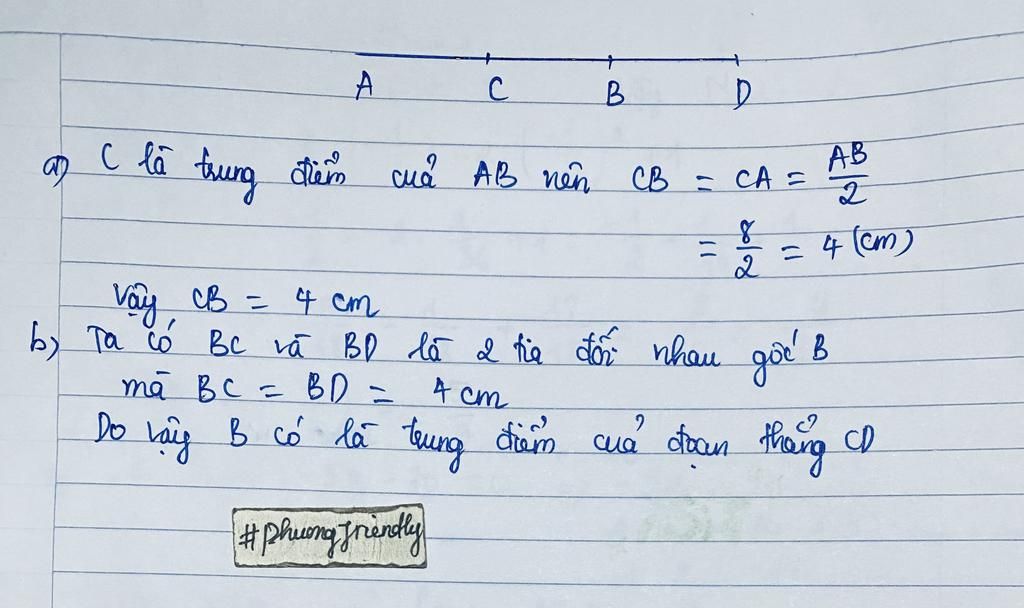 A C B D
a) C là trung điểm của AB nên CB = CA = AB/2
= 8/2 = 4 (cm)
Vậy CB = 4 cm
b) Ta có BC và BD là 2 tia đối nhau gốc B
mà BC = BD = 4 cm
Do vậy B có là trung điểm của đoạn thẳng CD
#phuongfriendly